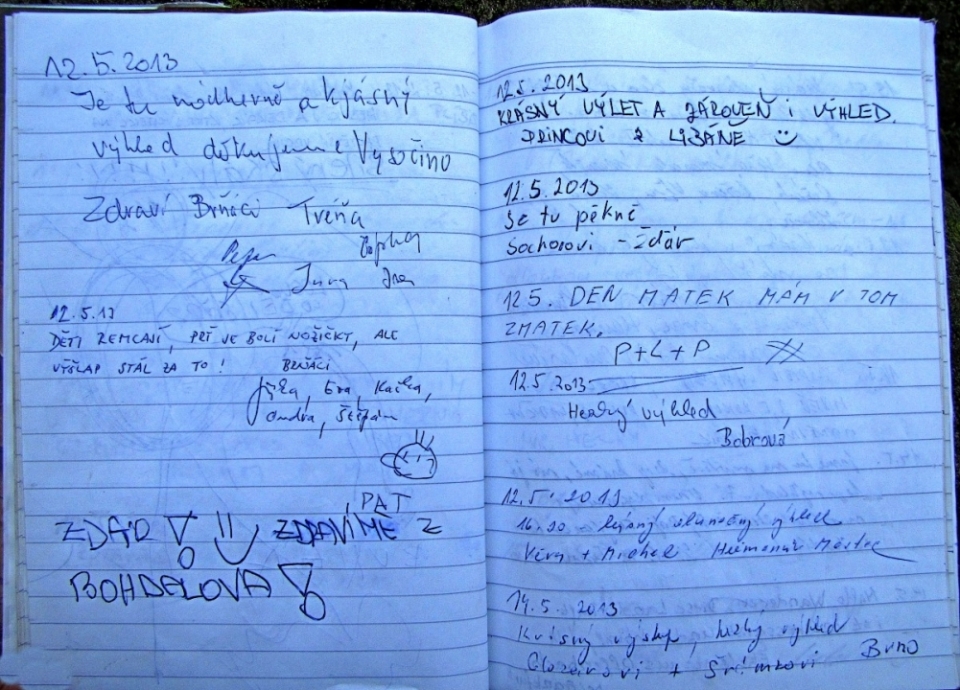 12.5.2013
Je tu nádherně a kjásný
výhled děkujeme Vysočino
Zdraví Brňáci Tréňa
Pepa
Jura
12.5.13
DĚTI REMCAJÍ, PRÝ JE BOLÍ NOŽIČKY, ALE
VÝŠLAP STÁL ZA TO! BRŇÁCI
Jíťa, Eva, Kačka,
Ondra, Štěpán
PAT
ZDAR! ZDRAVÍME Z
BOHDALOVA!
12.5.2013
KRÁSNÝ VÝLET A ZÁROVEŇ I VÝHLED.
PRINCOVI Z LIBÁNĚ
12.5.2013
Je tu pěkně
Sochorovi - Žďár
12.5. DEN MATEK MÁM V TOM
ZMATEK.
P+L+P
12.5.2013
Hezký výhled
Bobrová
12.5. 2013
16.30 krásný slunečný výhled
Věra + Michal Heřmanův Městec
14.5.2013
Krásný výstup, hezky výhled
+ Šrámkovi Brno